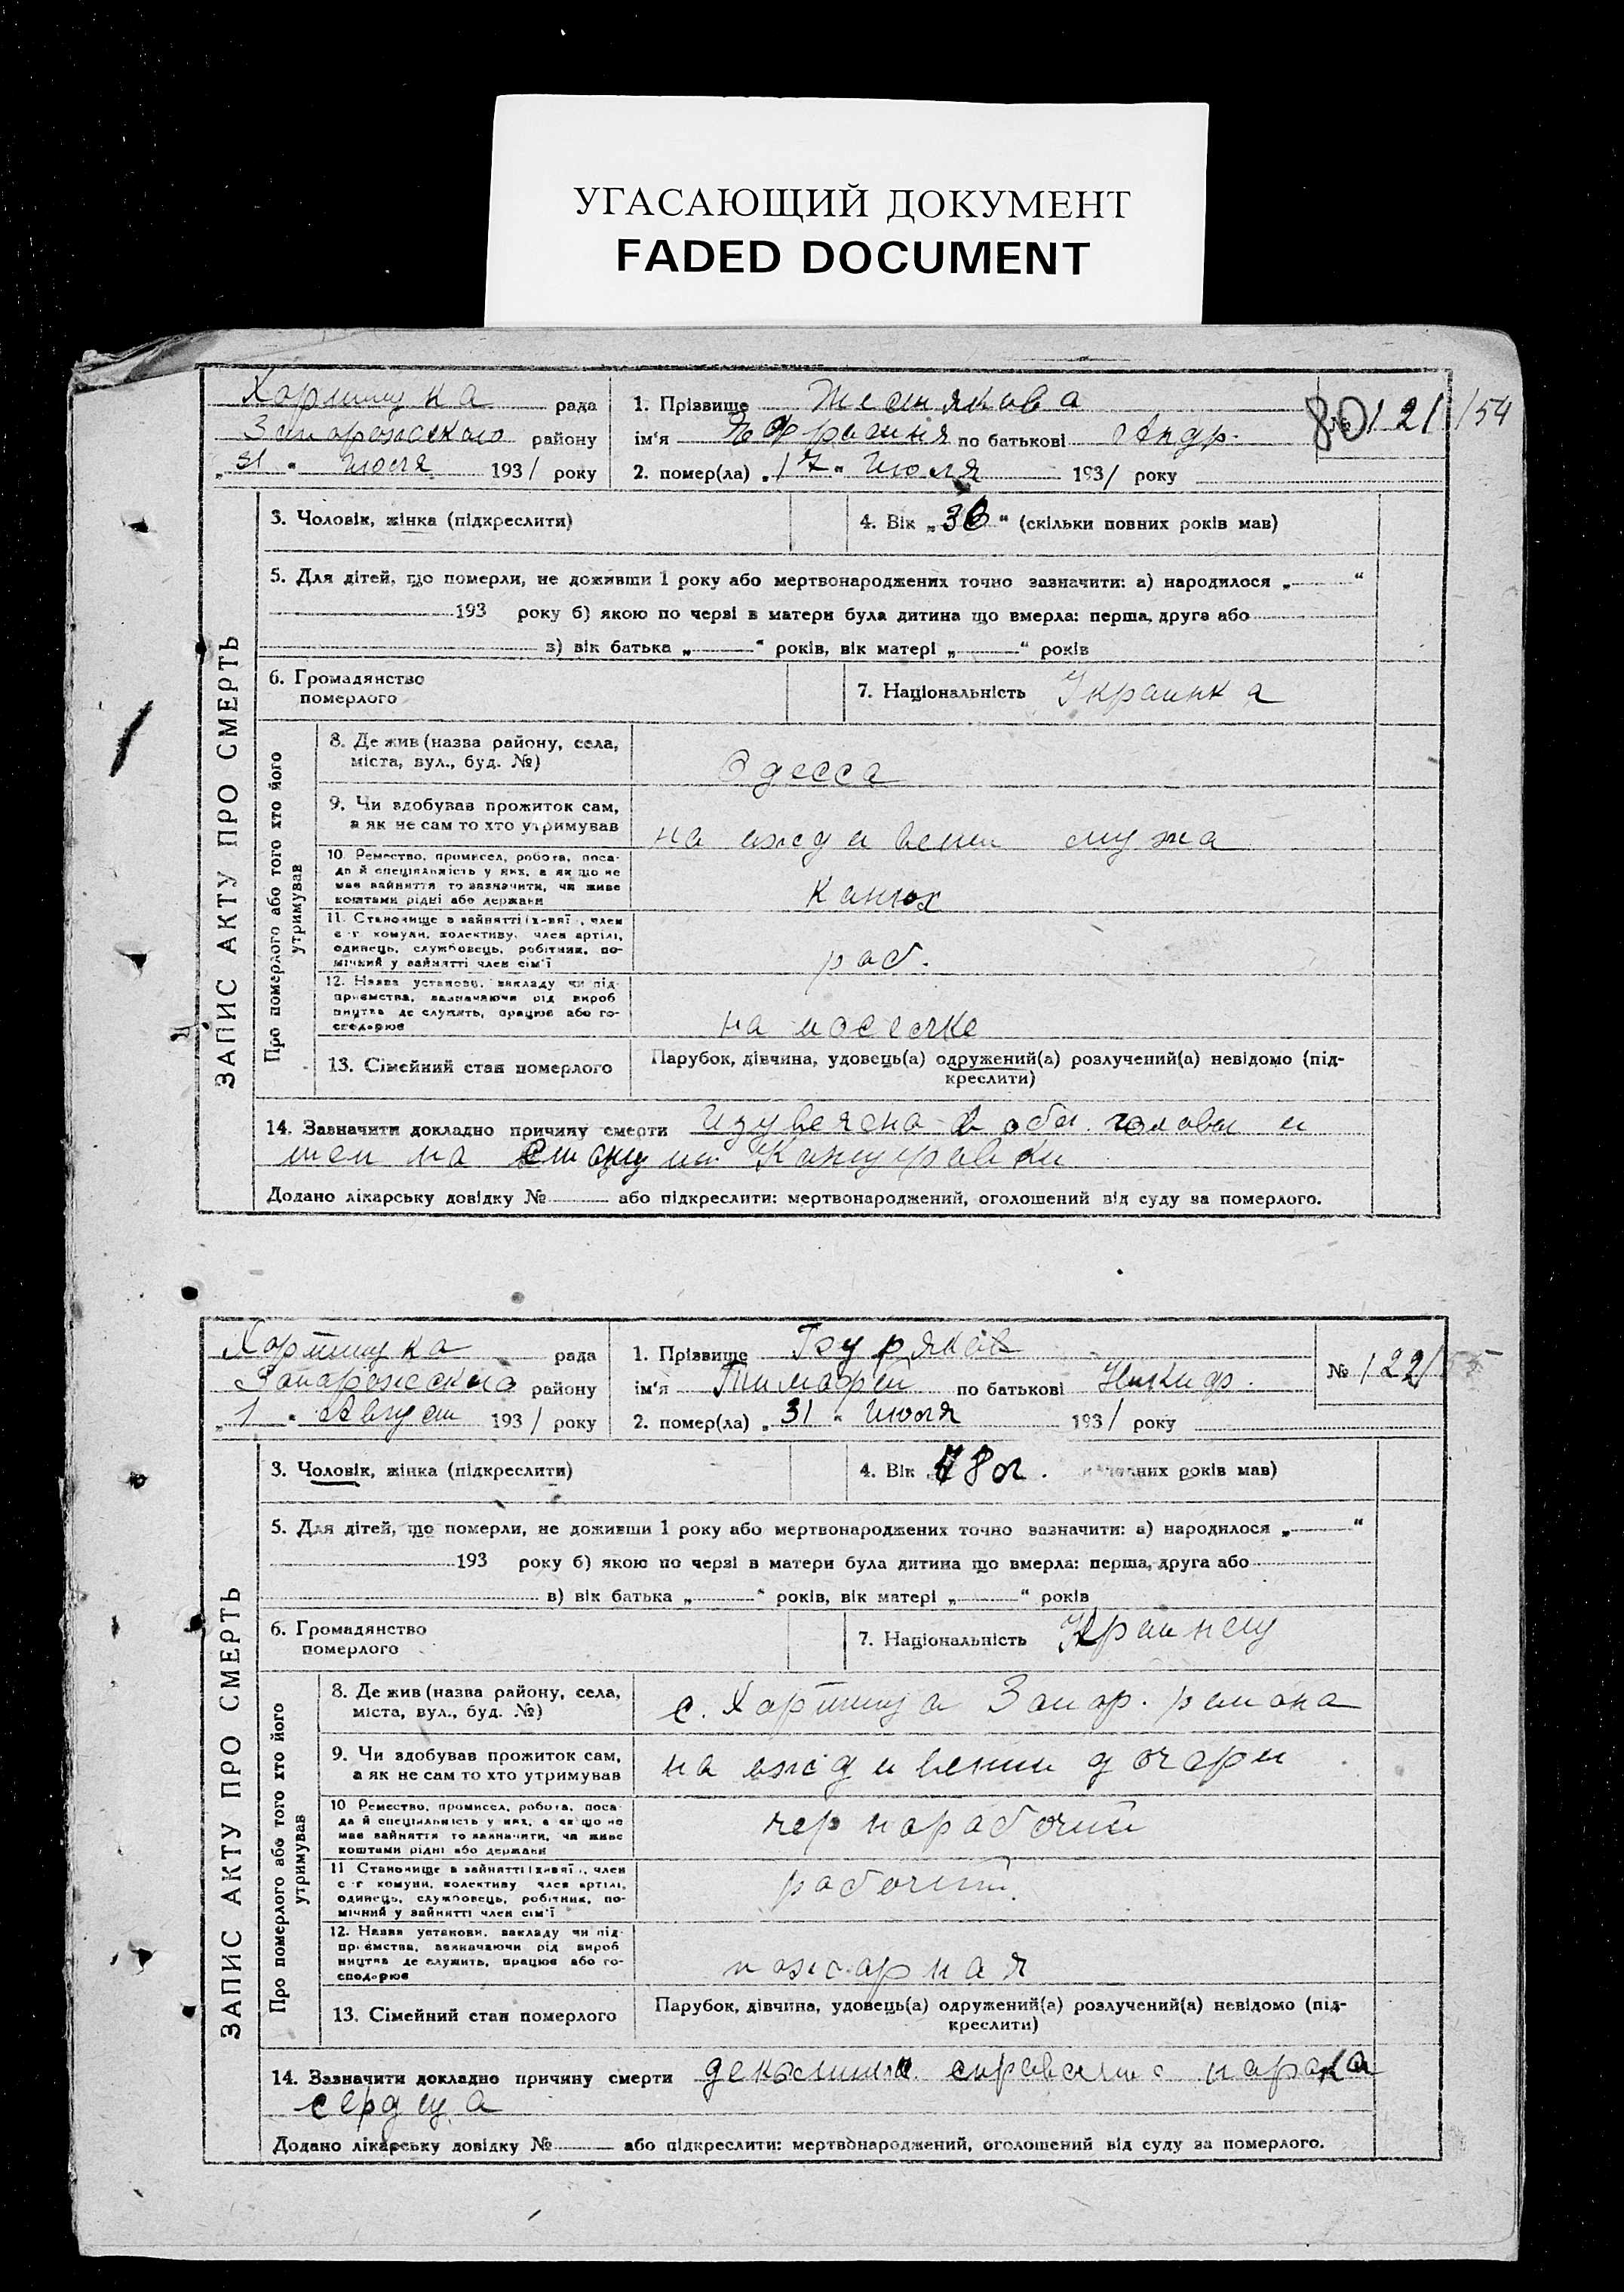 УГАСАЮЩИЙ ДОКУМЕНТ
FADED DOCUMENT
рада
Запорожского району
„31“ Июля 1931 року
1. Прізвище
ім'я по батькові Андр.
2. помер(ла) „17“ Июля 1931 року
80 121/154
ЗАПИС АКТУ ПРО СМЕРТЬ
3. Чоловік, жінка (підкреслити)
4. Вік „36“ (скільки повних років мав)
5. Для дітей, що померли, не доживши 1 року або мертвонароджених точно зазначити: а) народилося „ “
193 року б) якою по черзі в матери була дитина що вмерла: перша, друга або
в) вік батька „ “ років, вік матері „ “ років
6. Громадянство
померлого
7. Національність Украинка
Про померлого або того хто його
утримував
8. Де жив (назва району, села,
міста, вул., буд. №)
Одесса
9. Чи здобував прожиток сам,
а як не сам то хто утримував
на иждивении мужа
10. Ремество, промисел, робота, поса-
да й спеціяльність у них, а як що не
мав зайняття то зазначити, чи живе
коштами рідні або держави
конюх
11. Становище в зайнятті член
с-г комуни, колективу, член артілі,
одинець, службовець, робітник, по-
мічний у зайнятті член сім'ї
раб.
12. Назва установи, закладу чи під-
приємства, зазначаючи рід вироб
ництва де служить, працює або го-
сподарює
на
13. Сімейний стан померлого
Парубок, дівчина, удовець(а) одружений(а) розлучений(а) невідомо (під-
креслити)
14. Зазначити докладно причину смерти головы и
шеи на
Додано лікарську довідку № або підкреслити: мертвонароджений, оголошений від суду за померлого.
Хортица рада
Запорожского району
„1“ Август 1931 року
1. Прізвище
ім'я Тимофей по батькові Никиф.
2. помер(ла) „31“ Июля 1931 року
№ 122/55
ЗАПИС АКТУ ПРО СМЕРТЬ
3. Чоловік, жінка (підкреслити)
4. Вік 78 л. повних років мав)
5. Для дітей, що померли, не доживши 1 року або мертвонароджених точно зазначити: а) народилося „ “
193 року б) якою по черзі в матери була дитина що вмерла: перша, друга або
в) вік батька „ “ років, вік матері „ “ років
6. Громадянство
померлого
7. Національність Украинец
Про померлого або того хто його
утримував
8. Де жив (назва району, села,
міста, вул., буд. №)
с. Хортица Запор. района
9. Чи здобував прожиток сам,
а як не сам то хто утримував
на иждивении дочери
10 Ремество, промисел, робота, поса-
да й спеціяльність у них, а як що не
мав зайняття то зазначити, чи живе
коштами рідні або держави
чернорабочий
11 Становище в зайнятті член
с-г комуни, колективу член артілі,
одинець, службовець, робітник, по-
мічний у зайнятті член сім'ї
рабочий.
12. Назва установи, закладу чи під-
приємства, зазначаючи рід вироб
ництва де служить, працює або го-
сподарює
пожарная
13. Сімейний стан померлого
Парубок, дівчина, удовець(а) одружений(а) розлучений(а) невідомо (під-
креслити)
14. Зазначити докладно причину смерти порока
сердца
Додано лікарську довідку № або підкреслити: мертвонароджений, оголошений від суду за померлого.